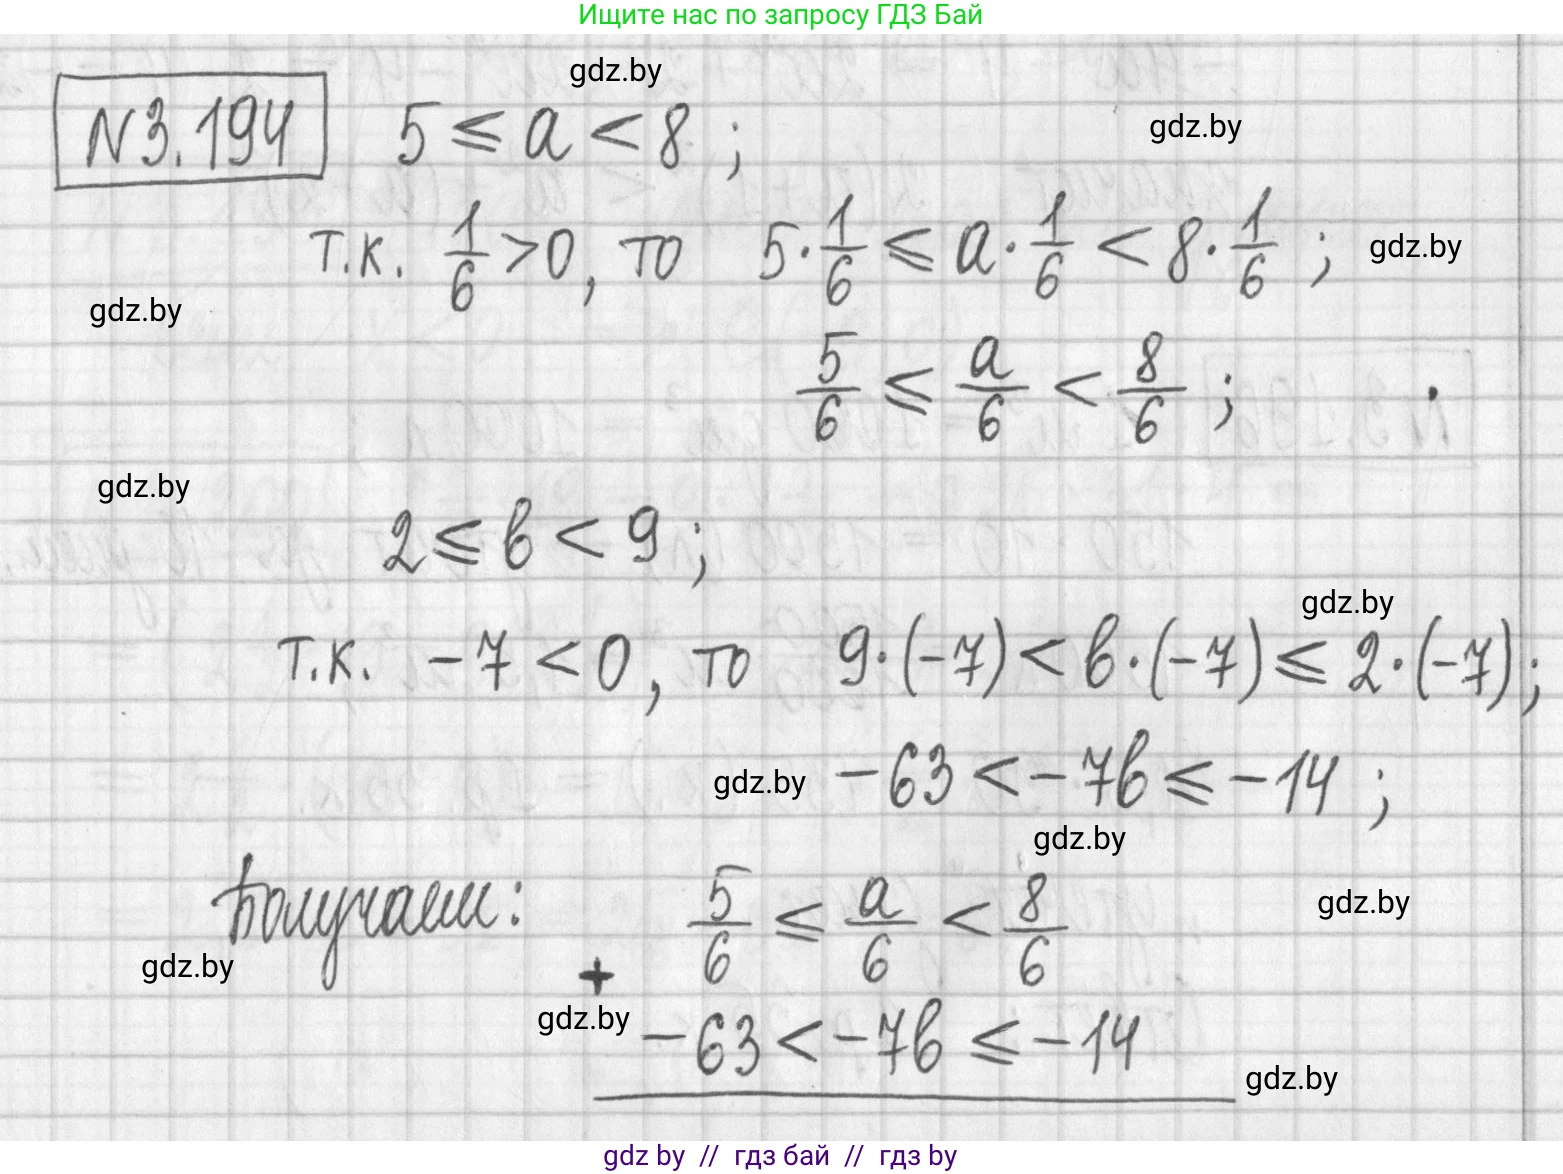 Ищите нас по запросу ГДЗ Бай
gdz.by
N3.194 5 ≤ a < 8 ;
gdz.by
т.к. 1/6 > 0, то 5·1/6 ≤ a·1/6 < 8·1/6 ;
gdz.by
gdz.by
5/6 ≤ a/6 < 8/6 ;
gdz.by
2 ≤ в < 9 ;
gdz.by
т.к. -7 < 0, то 9·(-7) < в·(-7) ≤ 2·(-7) ;
gdz.by
-63 < -7в ≤ -14 ;
gdz.by
Получаем: 5/6 ≤ a/6 < 8/6
gdz.by
gdz.by
+
gdz.by
-63 < -7в ≤ -14
gdz.by
gdz by // гдз бай // гдз by